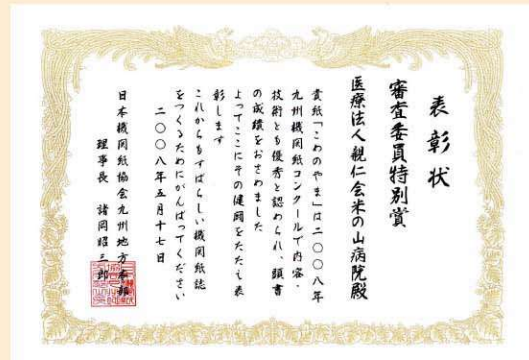 表彰状
審査委員特別賞
医療法人親仁会米の山病院殿
貴紙「こめのやま」は二〇〇八年
九州機関紙コンクールで内容・
技術とも優秀と認められ、頭書
の成績をおさめました
よってここにその健闘をたたえ表
彰します
これからもすばらしい機関紙誌
をつくるためにがんばってください
二〇〇八年五月十七日
日本機関紙協会九州地方本部
理事長 諸岡昭三郎